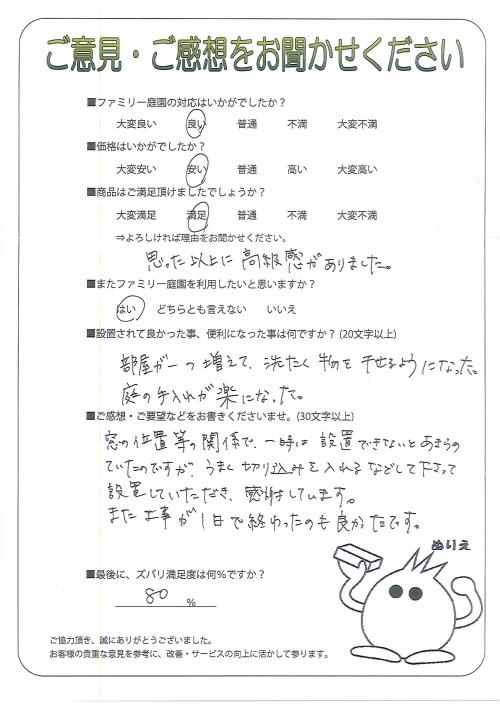 ご意見・ご感想をお聞かせください
■ファミリー庭園の対応はいかがでしたか？
大変良い 良い 普通 不満 大変不満
■価格はいかがでしたか？
大変安い 安い 普通 高い 大変高い
■商品はご満足頂けましたでしょうか？
大変満足 満足 普通 不満 大変不満
⇒よろしければ理由をお聞かせください。
思った以上に高級感がありました。
■またファミリー庭園を利用したいと思いますか？
はい どちらとも言えない いいえ
■設置されて良かった事、便利になった事は何ですか？(20文字以上)
部屋が一つ増えて、洗たく物を干せるようになった。
庭の手入れが楽になった。
■ご感想・ご要望などをお書きくださいませ。(30文字以上)
窓の位置等の関係で、一時は設置できないとあきらめ
ていたのですが、うまく切り込みを入れるなどして下さって
設置していただき、感謝しています。
また工事が1日で終わったのも良かったです。
ぬりえ
■最後に、ズバリ満足度は何％ですか？
80 ％
ご協力頂き、誠にありがとうございました。
お客様の貴重な意見を参考に、改善・サービスの向上に活かして参ります。